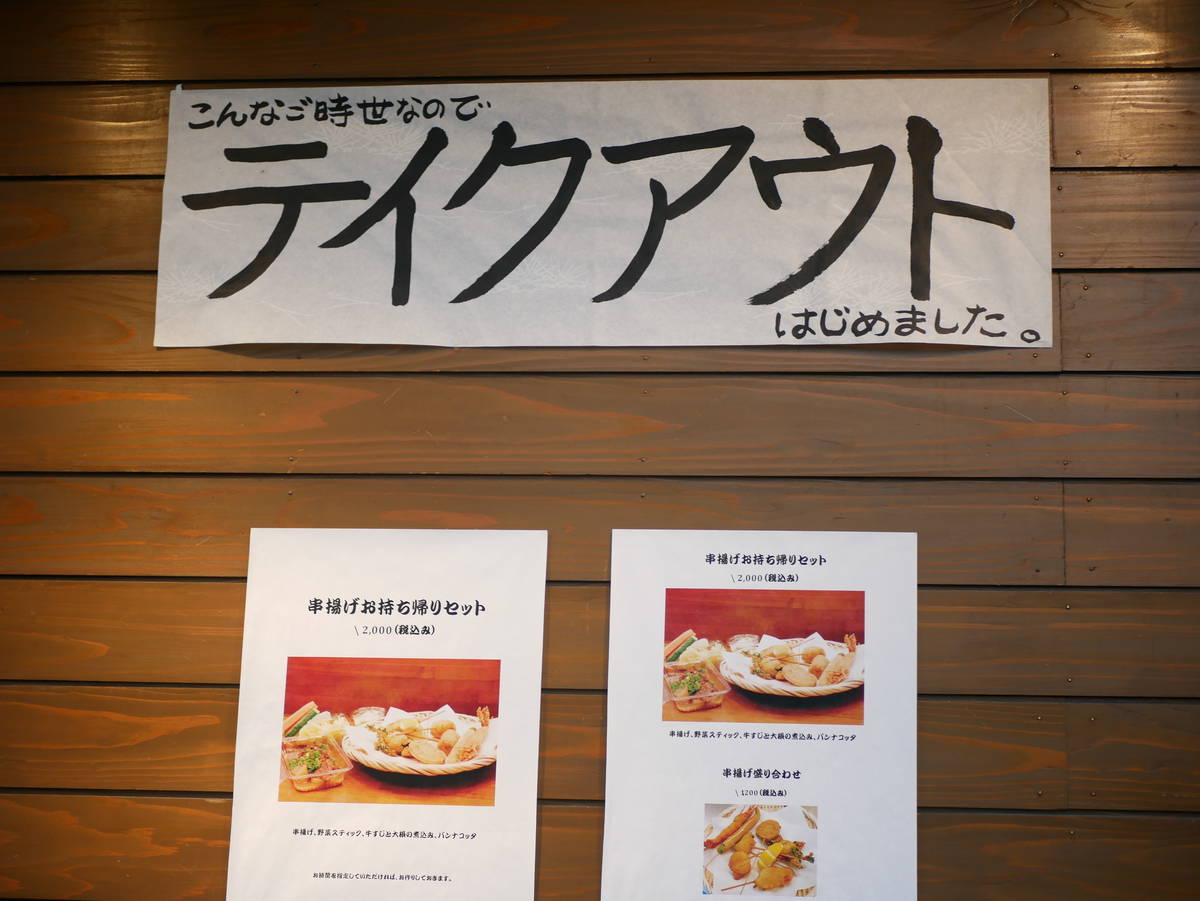 こんなご時世なので
テイクアウト
はじめました。
串揚げお持ち帰りセット
\ 2,000(税込み)
串揚げ、野菜スティック、牛すじと大根の煮込み、パンナコッタ
お時間を指定していただければ、お作りしておきます。
串揚げお持ち帰りセット
\ 2,000(税込み)
串揚げ、野菜スティック、牛すじと大根の煮込み、パンナコッタ
串揚げ盛り合わせ
\ 1200(税込み)